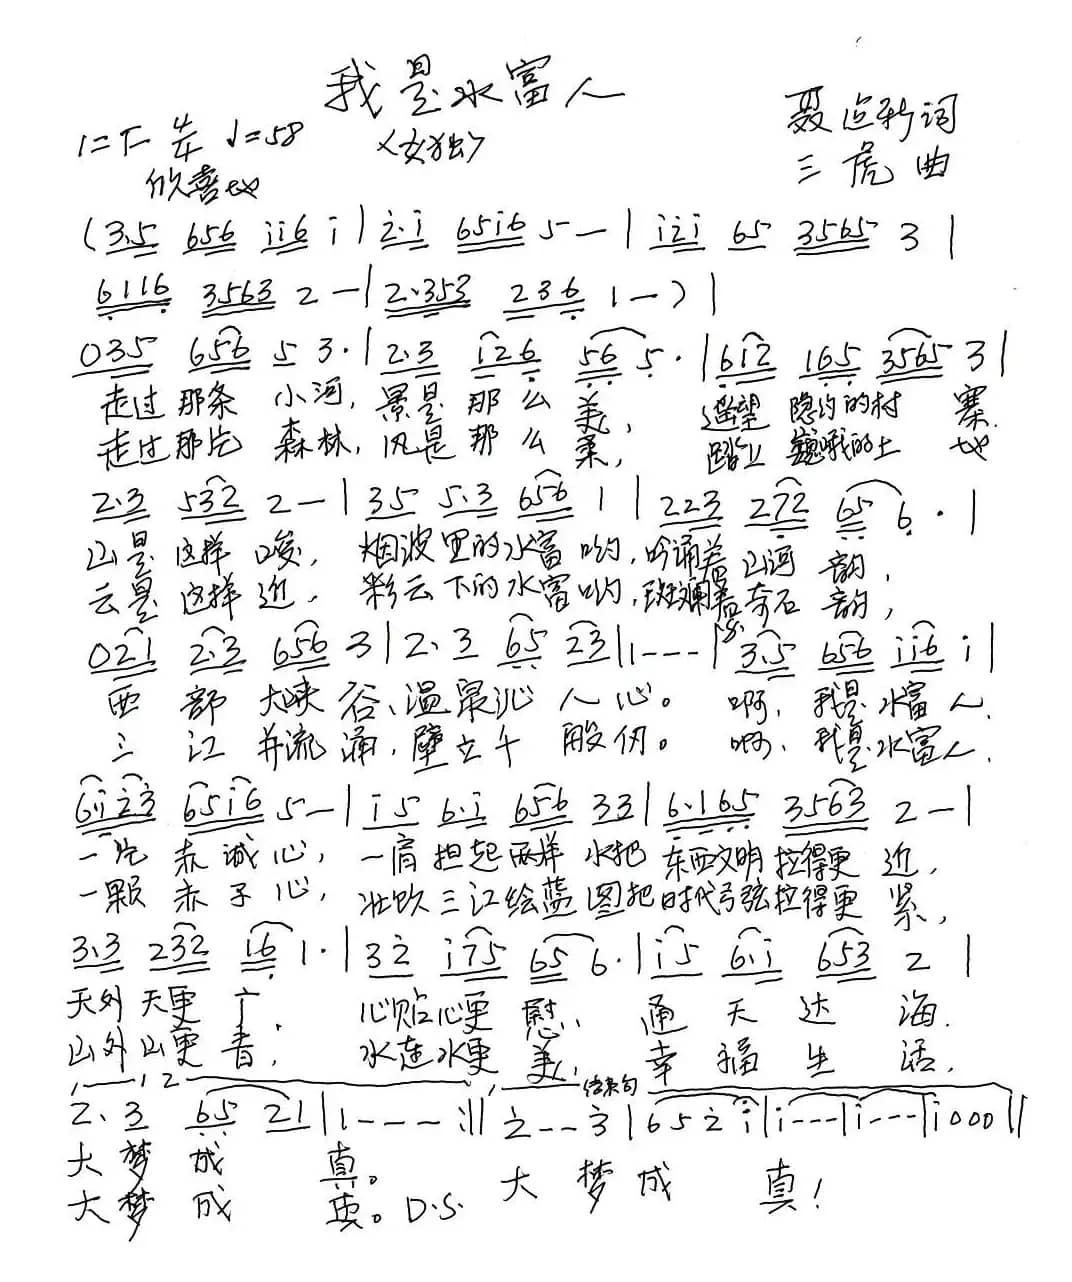 我是水富人
1=F 4/4 ♩=58 <女独> 聂 新词
欣喜地 三虎曲
(3.5 656 i i 6 i | 2.i 65i6 5 — | i2i 65 3565 3 |
6116 3563 2 — | 2.353 236 1 — ) |
035 656 5 3. | 2.3 126 56 5. | 612 165 3565 3 |
走过那条 小河, 景是那么美, 遥望 隐约的村 寨.
走过那片 森林, 风是那么柔, 踏上 巍峨的土 地
2.3 532 2 — | 35 5.3 656 1 | 223 272 65 6. |
山是这样 峻, 烟波里的水富哟, 吟诵着山河 韵,
云是这样近, 彩云下的水富哟, 斑斓着奇石 韵,
021 2.3 656 3 | 2. 3 65 23 | 1 - - - | 3.5 656 i i 6 i |
西 部 大峡 谷、温泉沁 人 心。 啊, 我是水富人.
三 江 并流 涌, 壁立千 般仞。 啊, 我是水富人.
6i23 65i6 5 — | i5 6.i 656 33 | 6.165 3563 2 — |
一片 赤诚心, 一肩担起两样 水把 东西文明拉得更 近,
一颗 赤子心, 壮饮三江绘蓝 图把时代弓弦拉得更 紧,
3.3 232 16 1. | 32 i75 65 6. | i5 6.i 653 2 |
天外天更 广, 心贴心更 慰, 通 天 达 海.
山外山更 青, 水连水更 美, 幸 福 生 活.
1 2 结束句
2. 3 65 21 | 1 - - - :|| 2 - - 3 | 6 5 2 i | i - - - | i - - - | i 0 0 0 ||
大梦 成 真。 大 梦 成 真!
大梦 成 真。D.S.